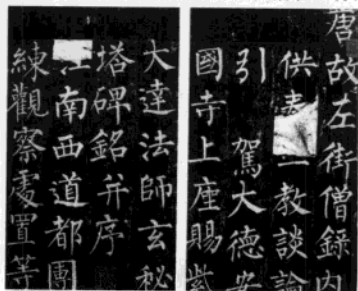 唐故左街僧録内
供奉三教談論
引駕大德安
國寺上座賜紫
大達法師玄秘
塔碑銘并序
江南西道都團
練觀察處置等